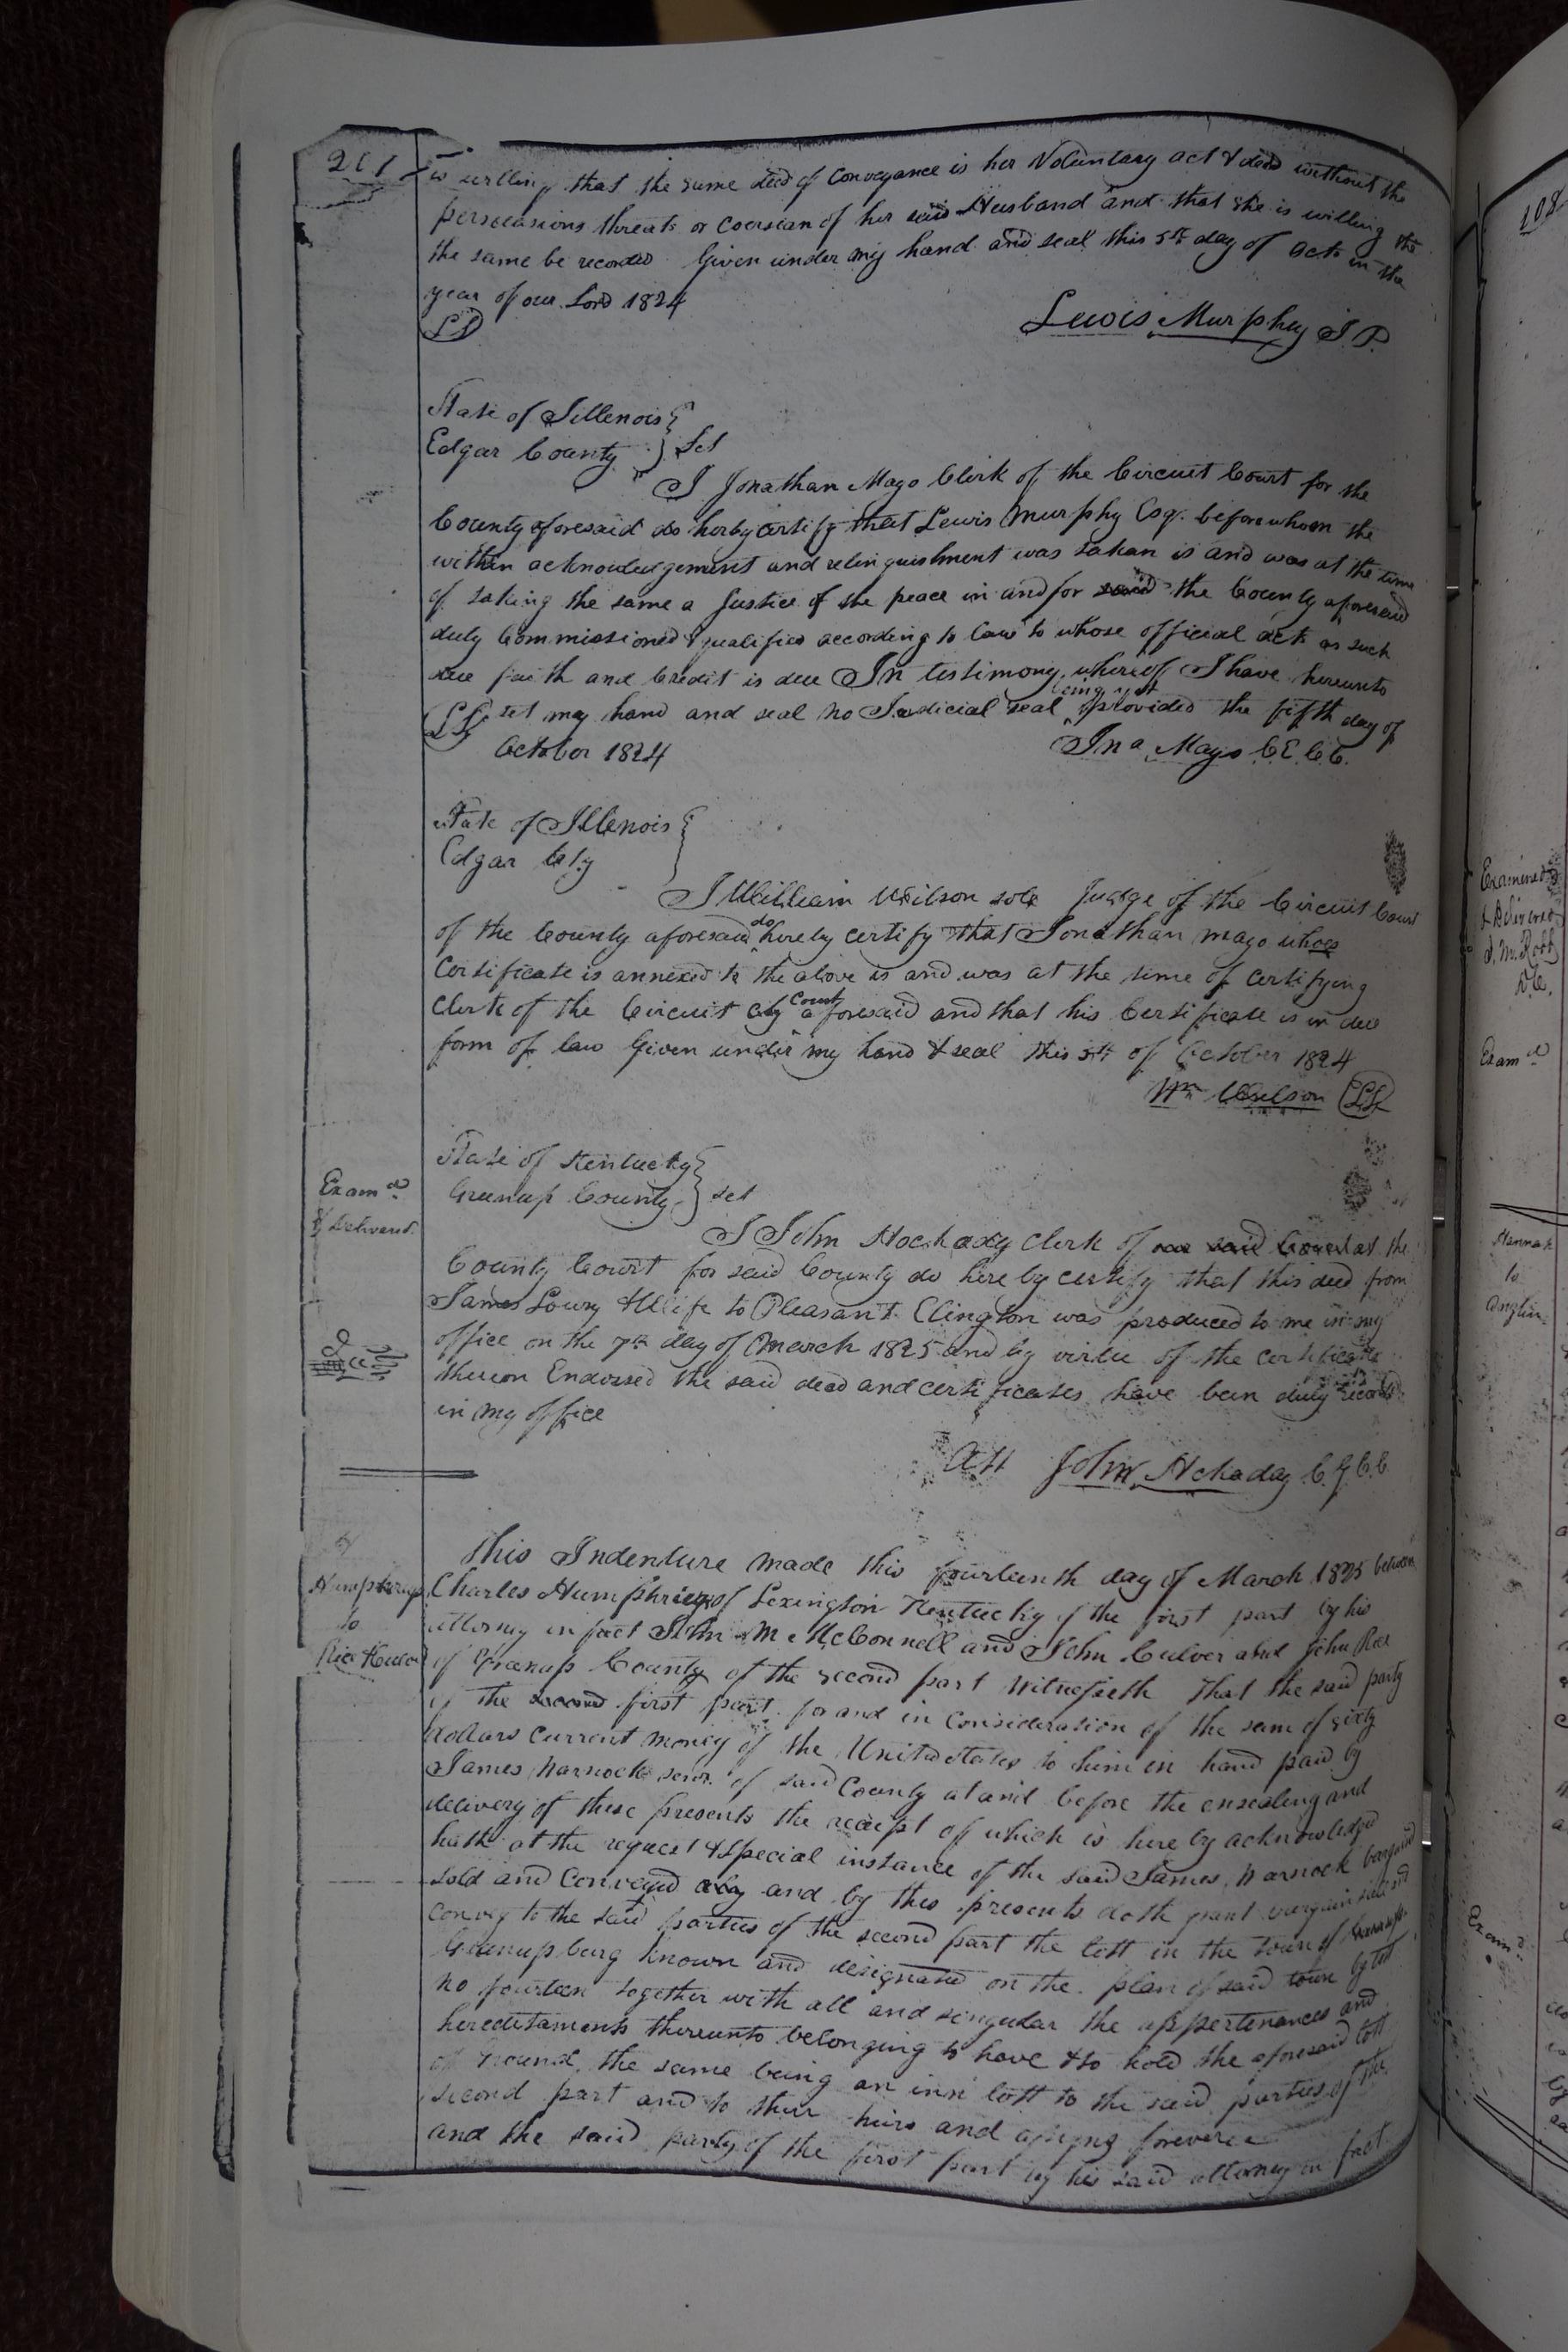 201
is willing that the same deed of Conveyance is her Voluntary act & deed without the
perscasions threats or Coersian of her said Husband and that she is willing the
the same be recorded Given under my hand and seal this 5th day of Octo in the
year of our Lord 1824
LS
Lewis Murphy J P.
State of Illenois
Edgar County } Sct
I Jonathan Mayo Clerk of the Circuit Court for the
County aforesaid do herby certify that Lewis Murphy Esqr. before whom the
within acknowledgement and relinquishment was taken is and was at the time
of taking the same a Justice of the peace in and for said the County aforesaid
duly Commissioned & qualified according to law to whose official acts as such
due faith and Credit is due In testimony whereof I have hereunto
LS set my hand and seal no Judicial seal being yet provided the fifth day of
October 1824
Jna Mayo C.E.C.C.
State of Illenois
Edgar Cty
I William Wilson sole Judge of the Circuit Court
of the County aforesaid do hereby certify that Jonathan Mayo whoes
Certificate is annexed to the above is and was at the time of Certifying
Clerk of the Circuit Cty Court aforesaid and that his Certificate is in due
form of law Given under my hand & seal this 5th of October 1824
Wm Wilson LS
Examd
& Delivered
State of Kentucky
Greenup County } sct
I John Hockaday Clerk of the
County Court for said County do here by certify that this deed from
James Lowry & Wife to Pleasant Elington was produced to me in my
office on the 7th day of March 1825 and by virtue of the certificate
thereon Endorsed the said deed and certificates have been duly recorded
in my office
Att John Hckaday C.G.C.C.
Humphreys
to
Rice & Culver
This Indenture made this fourteenth day of March 1825 between
Charles Humphreys of Lexington Kentucky of the first part by his
attorney in fact John M McConnell and John Culver and John Rice
of Greenup County of the second part Witnesseth that the said party
of the second first part for and in Consideration of the sum of sixty
dollars Current money of the United States to him in hand paid by
James Warnock senr. of said County at and before the ensealing and
delivery of these presents the receipt of which is here by acknowledged
hath at the request & special instance of the said James Warnock bargained
sold and Conveyed and by thes presents doth grant bargain sell and
convey to the said parties of the second part the lott in the town of
Greenup being known and designated on the plan of said town by lot
no fourteen together with all and singular the appertenances and
hereditaments thereunto belonging to have & to hold the aforesaid lott
of Ground, the same being an inn lott to the said parties of the
second part and to their heirs and assigns forever
and the said party of the first part by his said attorney in fact
108
Examined
& Delivered
D.C.
Examd
to
Examd